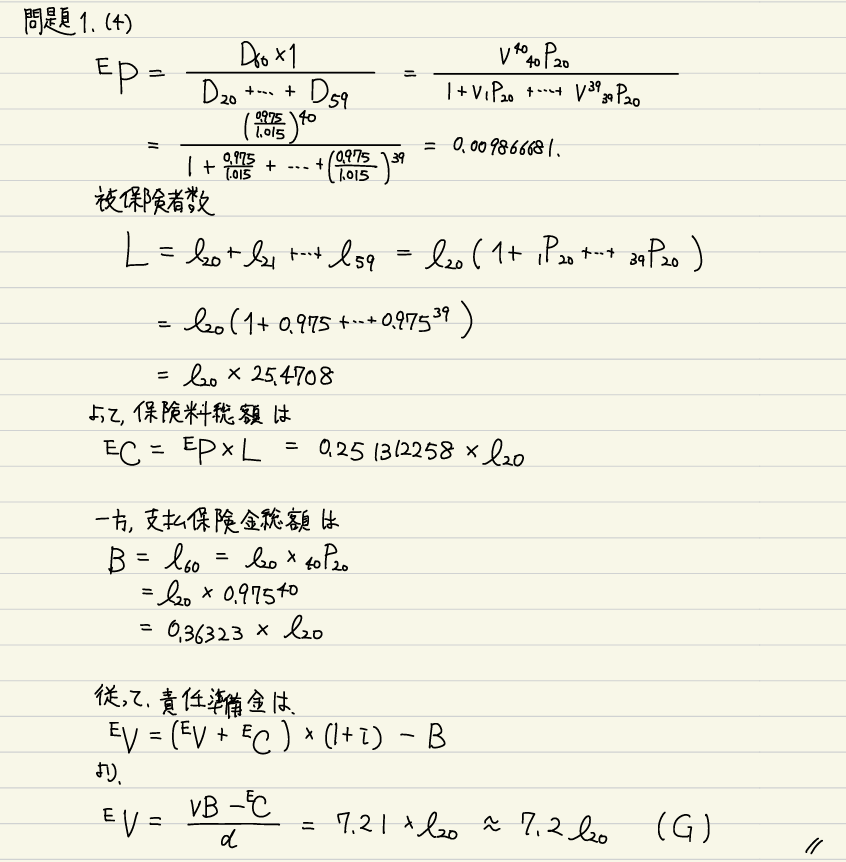 問題1.(4)
ᴱP = D₆₀×1 / (D₂₀+…+D₅₉) = V⁴⁰₄₀P₂₀ / (1+V₁P₂₀+…+V³⁹₃₉P₂₀)
= (0.975/1.015)⁴⁰ / (1+0.975/1.015+…+(0.975/1.015)³⁹) = 0.009866681.
被保険者数
L = l₂₀+l₂₁+…+l₅₉ = l₂₀(1+₁P₂₀+…+₃₉P₂₀)
= l₂₀(1+0.975+…+0.975³⁹)
= l₂₀ × 25.4708
よって, 保険料総額は
ᴱC = ᴱP×L = 0.251312258 × l₂₀
一方, 支払保険金総額は
B = l₆₀ = l₂₀ × ₄₀P₂₀
= l₂₀ × 0.975⁴⁰
= 0.36323 × l₂₀
従って, 責任準備金は,
ᴱV = (ᴱV + ᴱC) × (1+i) − B
より,
ᴱV = (VB − ᴱC) / d = 7.21 × l₂₀ ≈ 7.2 l₂₀ (G) //